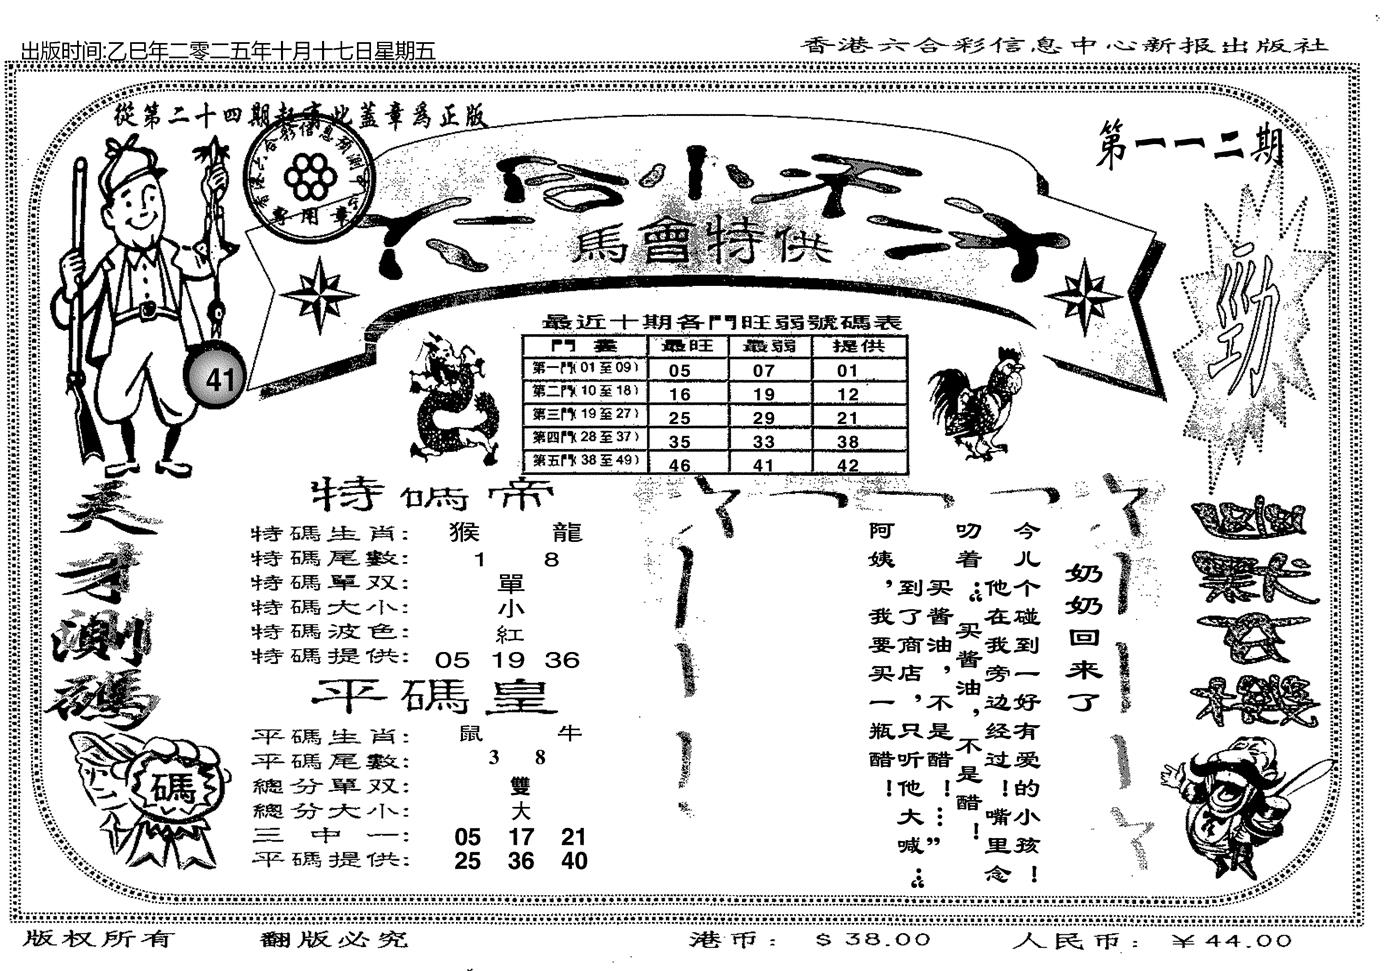 出版时间:乙巳年二零二五年十月十七日星期五
香港六合彩信息中心新报出版社
從第二十四期起蓋此蓋章爲正版
第一一二期
六合小不二才
馬會特供
勁
41
最近十期各門旺弱號碼表
門 最旺 最弱 提供
第一門(01至09) 05 07 01
第二門(10至18) 16 19 12
第三門(19至27) 25 29 21
第四門(28至37) 35 33 38
第五門(38至49) 46 41 42
天才測碼
碼
特碼帝
特碼生肖: 猴 龍
特碼尾數: 1 8
特碼單双: 單
特碼大小: 小
特碼波色: 紅
特碼提供: 05 19 36
平碼皇
平碼生肖: 鼠 牛
平碼尾數: 3 8
總分單双: 雙
總分大小: 大
三中一: 05 17 21
平碼提供: 25 36 40
奶奶回来了
今儿个碰到一好有爱的小孩!
他在我旁边经过!嘴里念
叨着:“买酱油,不是醋!
买酱油,不是醋!…”
到了商店,只听他大喊:“
阿姨,我要买一瓶醋!
版权所有
翻版必究
港币: $38.00
人民币: ￥44.00